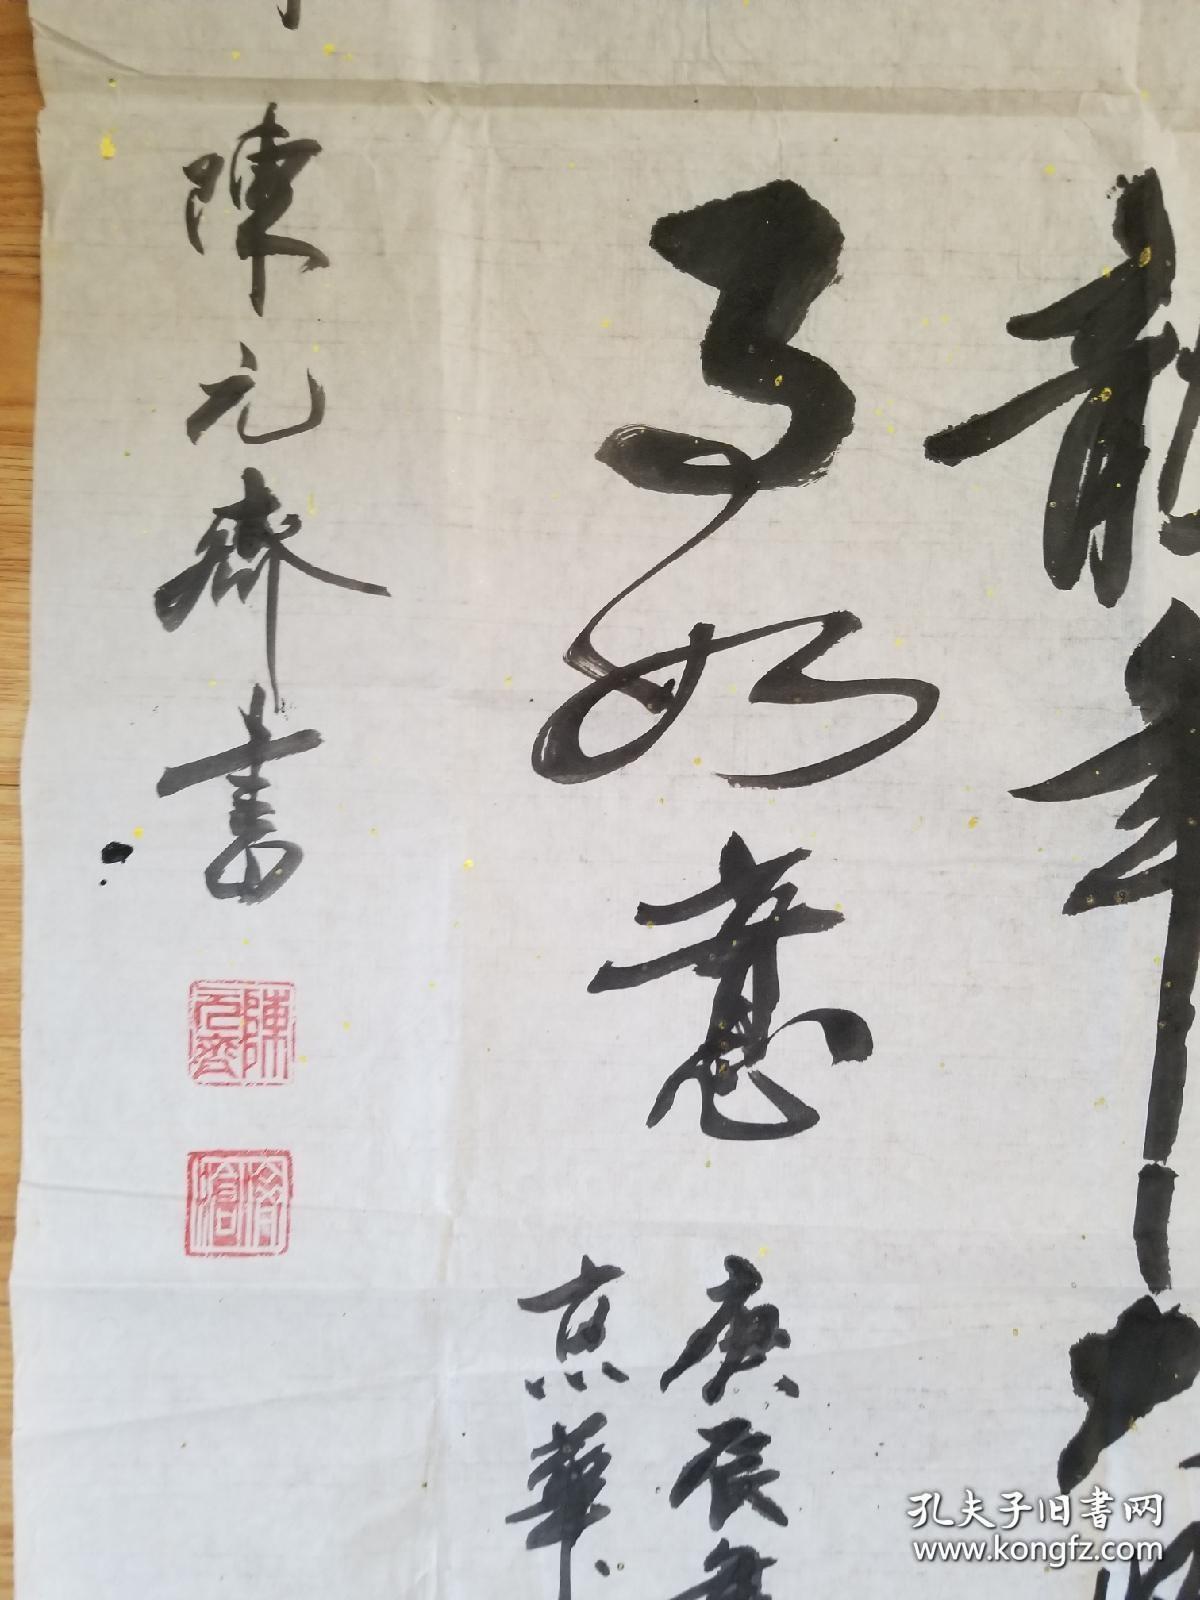 龍年大
事如意
庚辰年
京華
陳元齊書
陳元齊
孔夫子旧书网
www.kongfz.com